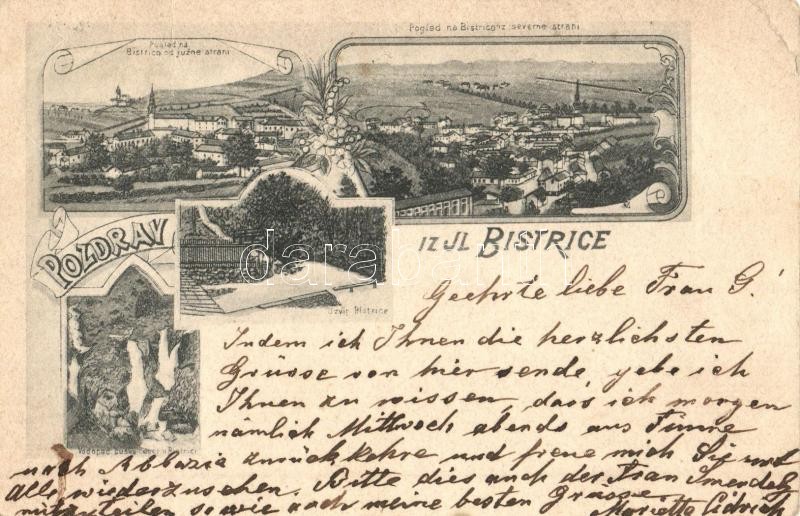 Pogled na Bistrico iz severne strani
Pogled na
Bistrico od južne strani
POZDRAV
IZ JL BISTRICE
Izvir Bistrice
Vodopad Sušec
Bistrici
darabanth
Geehrte liebe Frau G!
Indem ich Ihnen die herzlichsten
Grüsse von hier sende, gebe ich
Ihnen zu wissen, dass ich morgen
nämlich Mittwoch abends aus Fiume
nach Abbazia zurückkehre und freue mich Sie und
Alle wiederzusehen. Bitte dies auch der Frau Smerdel
mitzuteilen sowie auch meine besten Grüsse.
Marietta